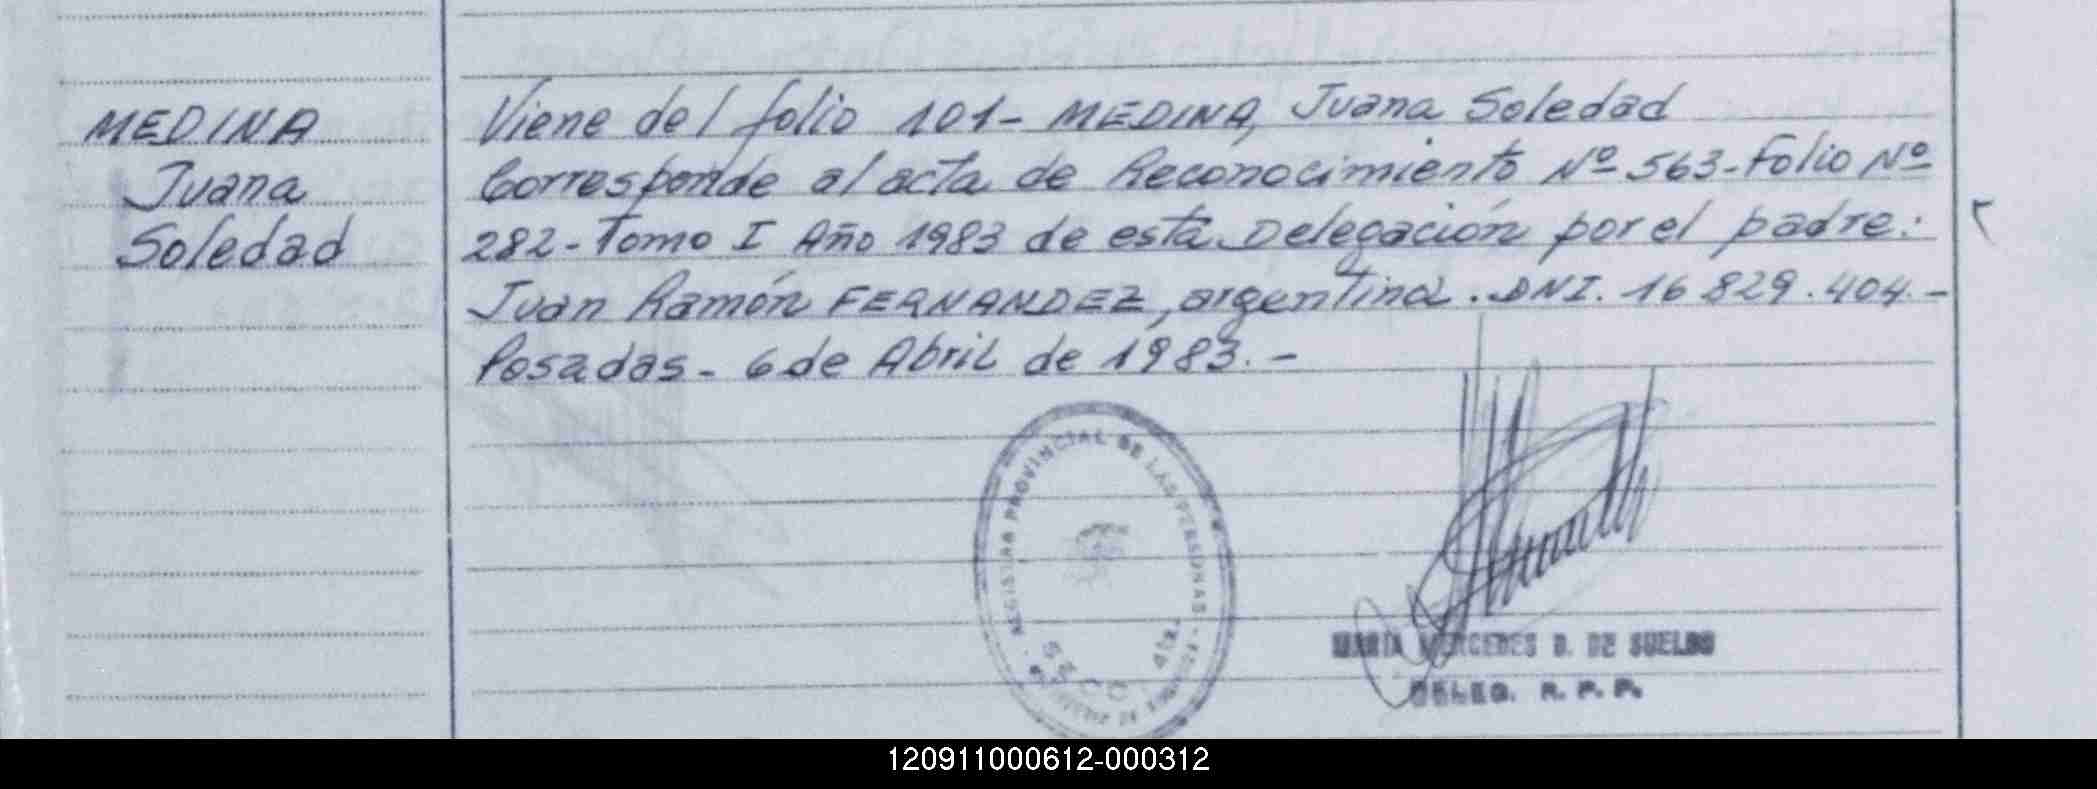 MEDINA
Juana
Soledad
Viene del folio 101- MEDINA, Juana Soledad
Corresponde al acta de Reconocimiento Nº 563-Folio Nº
282-Tomo I Año 1983 de esta Delegación por el padre:
Juan Ramón FERNANDEZ, argentina. DNI. 16 829.404.-
Posadas- 6 de Abril de 1983.-
REGISTRO PROVINCIAL DE LAS PERSONAS
MARIA MERCEDES D. DE SUELDO
DELEG. R. P. P.
120911000612-000312